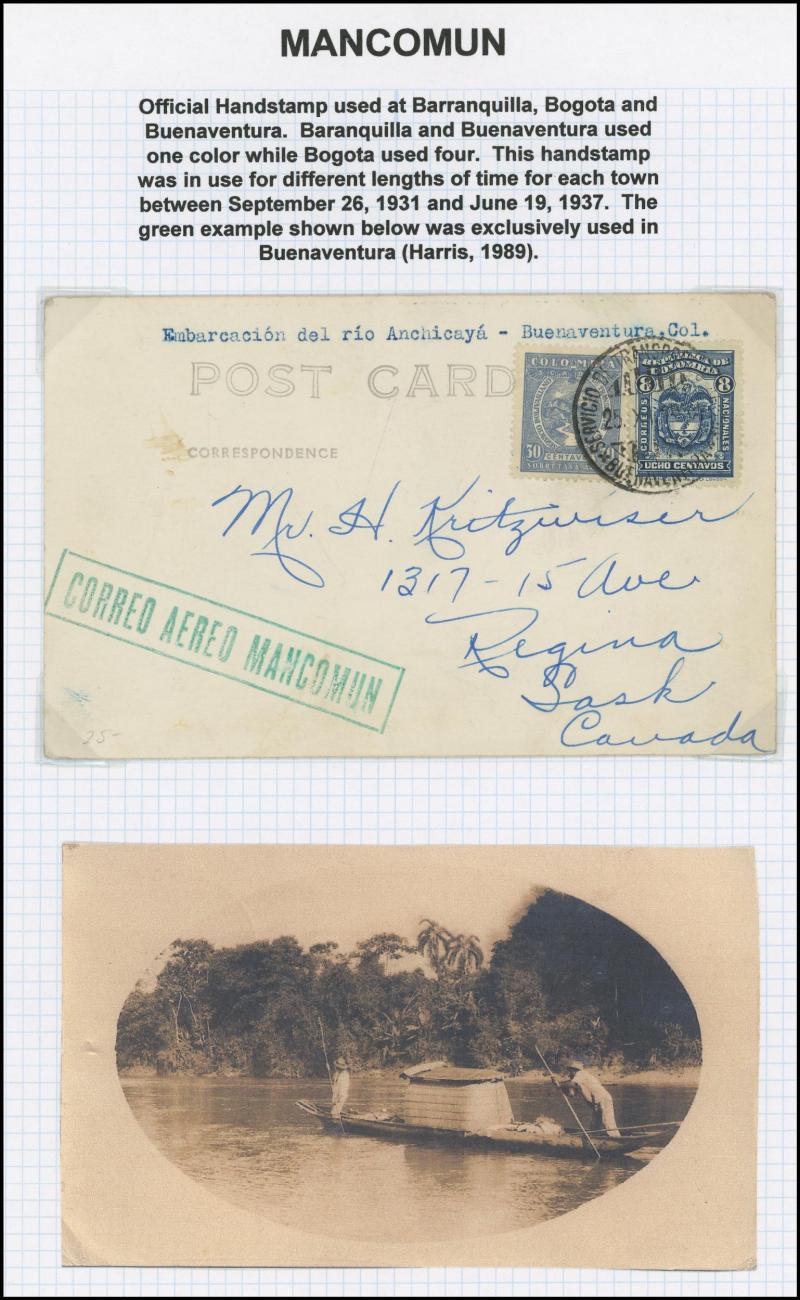 MANCOMUN
Official Handstamp used at Barranquilla, Bogota and
Buenaventura.  Baranquilla and Buenaventura used
one color while Bogota used four.  This handstamp
was in use for different lengths of time for each town
between September 26, 1931 and June 19, 1937.  The
green example shown below was exclusively used in
Buenaventura (Harris, 1989).
Embarcación del río Anchicayá - Buenaventura,Col.
POST CARD
CORRESPONDENCE
COLOMBIA
30 CENTAVOS
SOBRETASA
SERVICIO DE TRANSPORTES
25
BUENAVENTURA
COLOMBIA
8 8
CORREOS NACIONALES
OCHO CENTAVOS
Mr. H. Kritzwiser
1317-15 Ave
Regina
Sask
Canada
CORREO AEREO MANCOMUN
25-